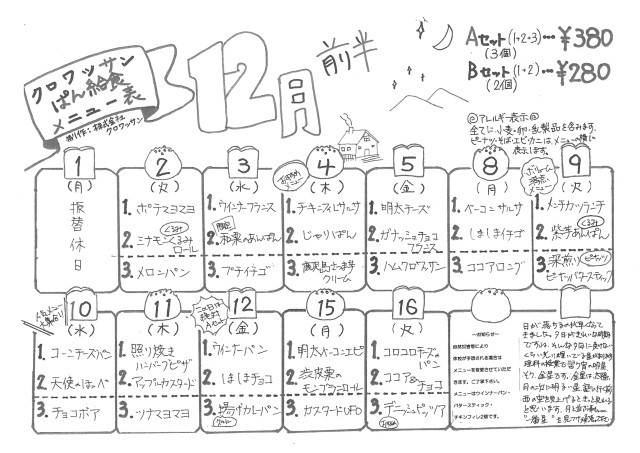 クロワッサン
ぱん給食
メニュー表
制作・株式会社
クロワッサン
12月
前半
Aセット(1+2+3)…¥380
(3個)
Bセット(1+2)…¥280
(2個)
◎アレルギー表示◎
全てに小麦・卵・乳製品を含みます。
ピーナッツ・そば・エビ・カニは、メニューの横に
表示します。
1
(月)
振替休日
2
(火)
1. ポテマヨマヨ
2. ミナモンくるみロール
くるみ
3. メロンパン
3
(水)
1. ウインナーフランス
2. 和栗のあんぱん
3. プチイチゴ
おすすめメニュー
4
(木)
1. チキンフィレサルサ
2. じゃりぱん
3. 鹿児島さつま芋クリーム
5
(金)
1. 明太チーズ
2. ガナッシュチョコフランス
3. ハムクロワッサン
8
(月)
1. ベーコンサルサ
2. しましまイチゴ
3. ココアロング
ボリューム満点メニュー
9
(火)
1. メンチカツランチ
くるみ
2. 紫芋あんぱん
3. 深煎り
ピーナッツ
ピーナッツバタースティック
10
(水)
1. コーンチーズパン
2. 天使のほっぺ
3. チョコボア
11
(木)
1. 照り焼きハンバーグピザ
2. アップルカスタード
3. ツナマヨマヨ
この日は絶対Aセット
12
(金)
1. ウインナーパン
2. しましまチョコ
3. 揚げカレーパン
15
(月)
1. 明太ベーコンエピ
2. 渋皮栗のモンブランロール
3. カスタードUFO
16
(火)
1. コロコロチーズのパン
2. ココア&チョコ
3. デニッシュピッツァ
～お知らせ～
自然災害等により
学校が予定される場合は
メニューを変更させていただ
きます。ご了承下さい。
メニューはウインナーパン・
バタースティック・
チキンフィレ2個です。